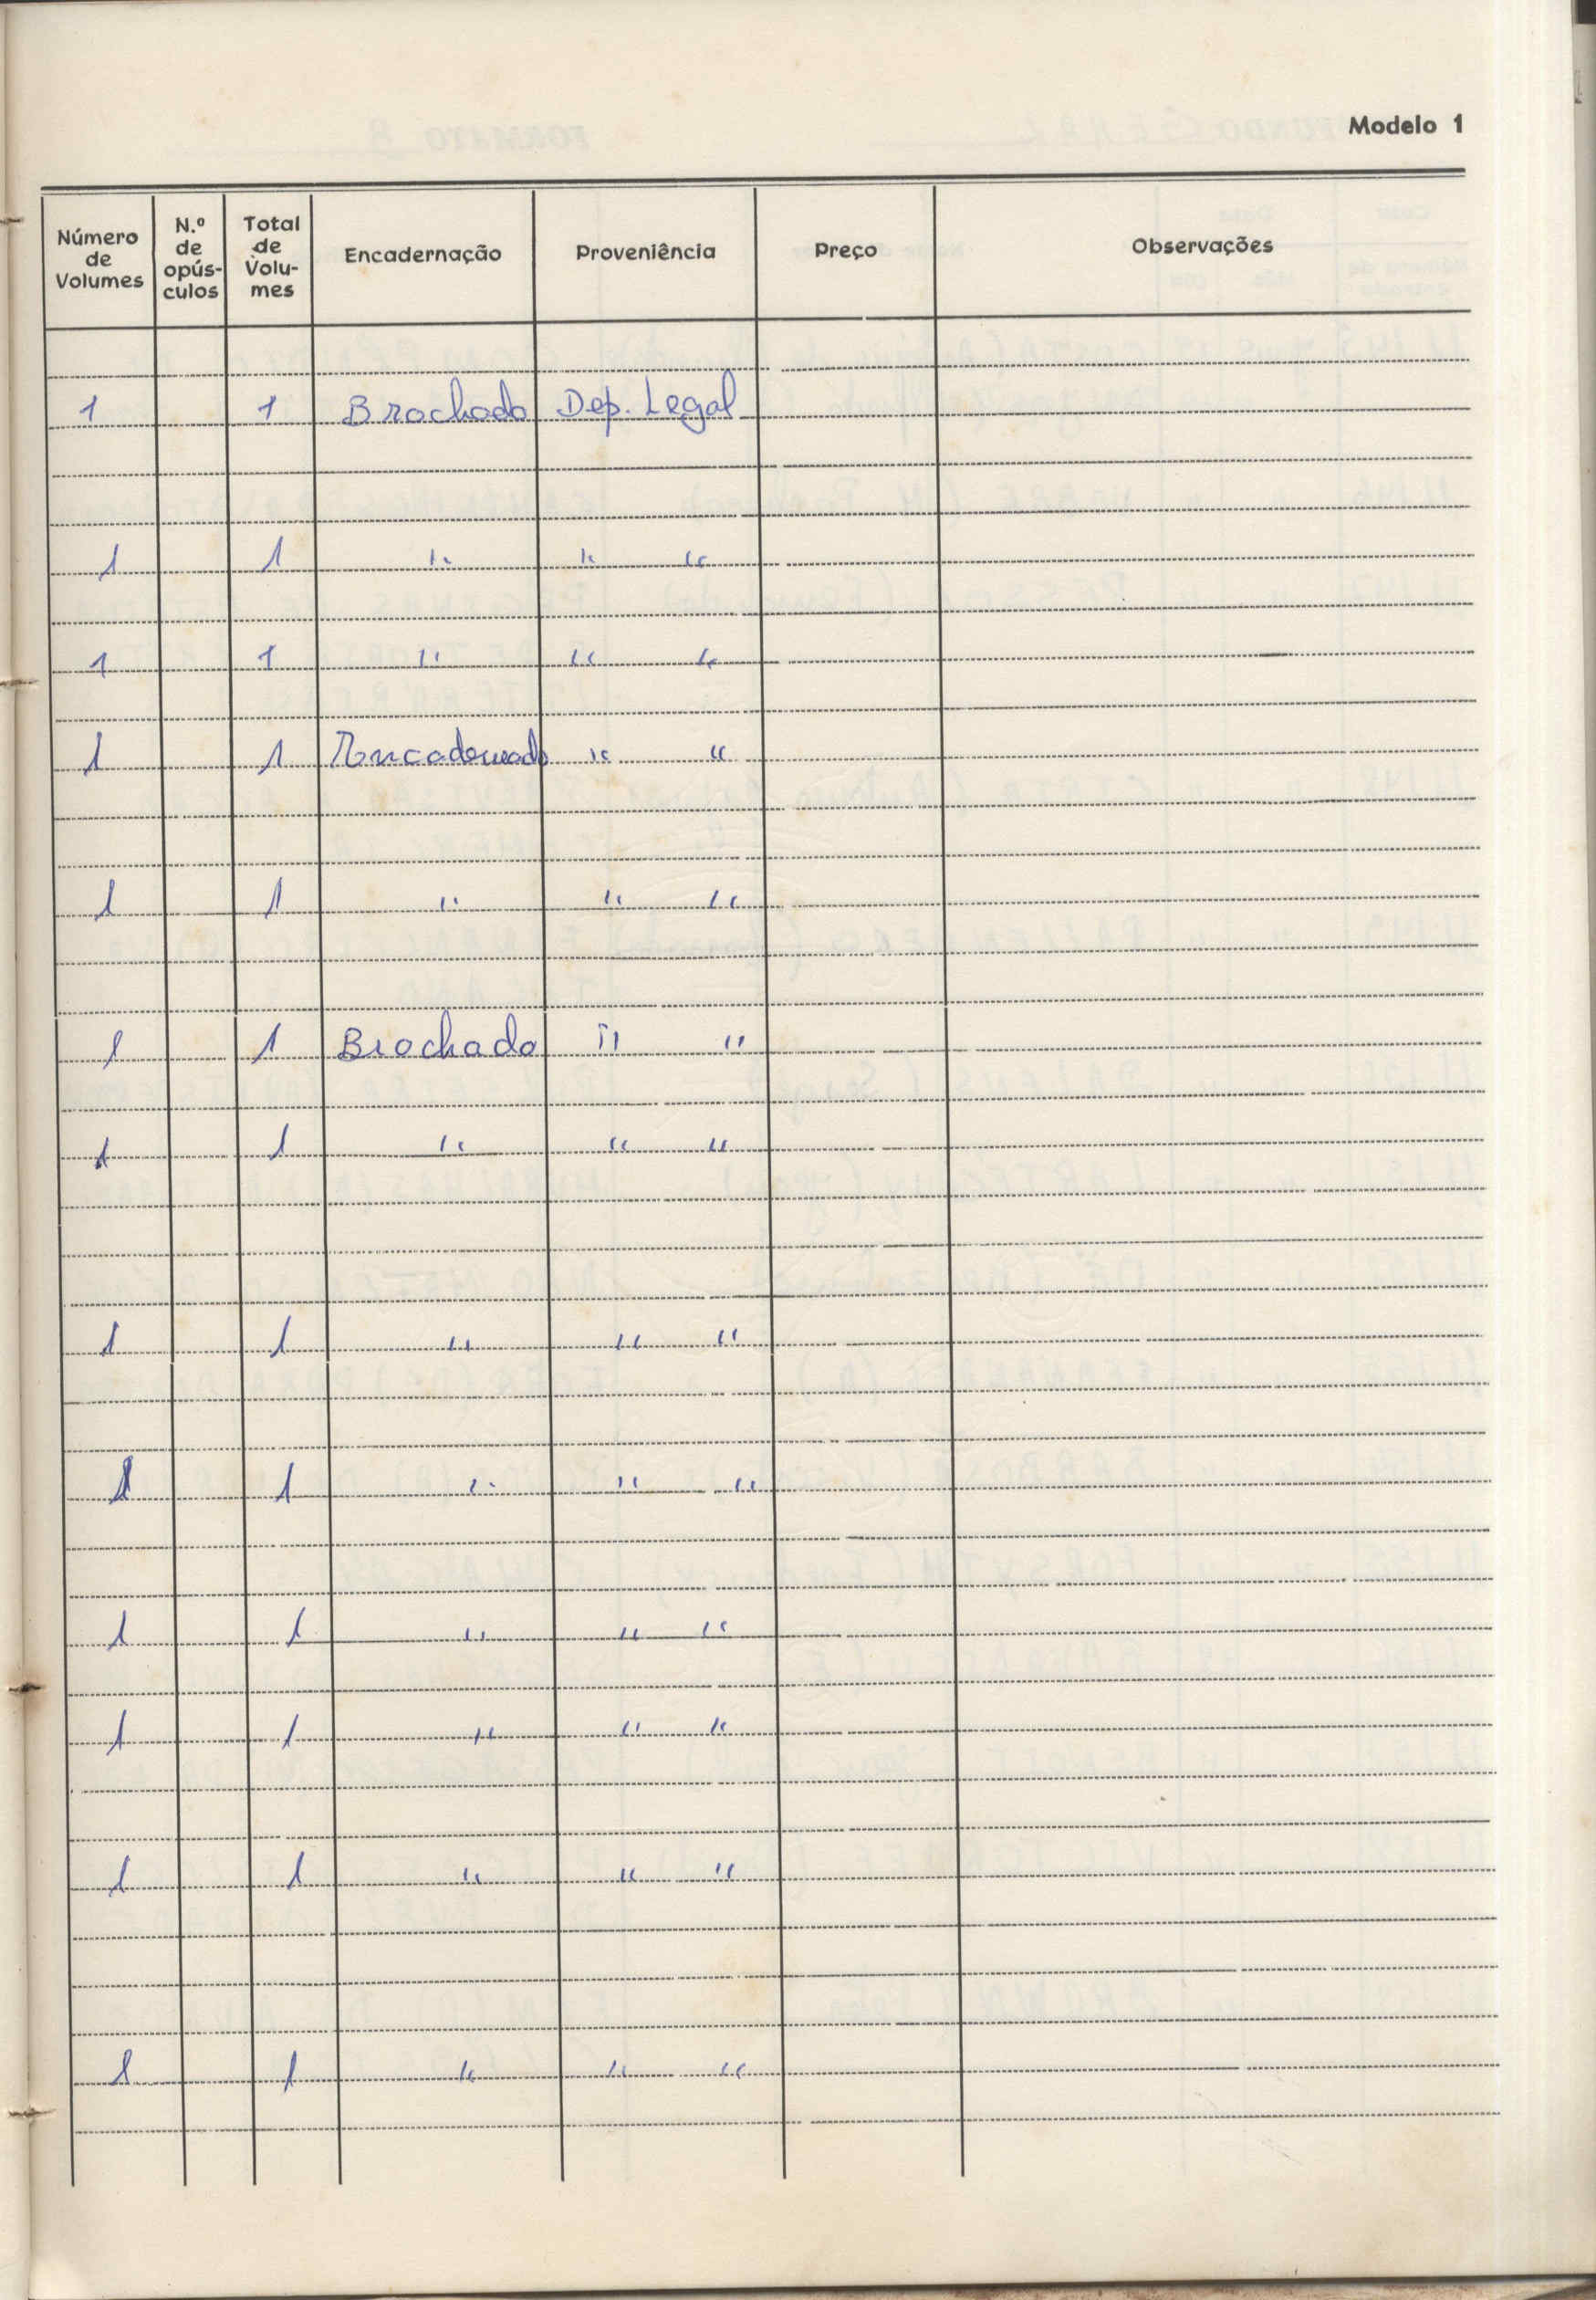 Modelo 1
Número de Volumes | N.º de opús-culos | Total de Volu-mes | Encadernação | Proveniência | Preço | Observações
1 1 Brochado Dep. Legal
1 1 " " "
1 1 " " "
1 1 Encadernado " "
1 1 " " "
1 1 Brochado " "
1 1 " " "
1 1 " " "
1 1 " " "
1 1 " " "
1 1 " " "
1 1 " " "
1 1 " " "